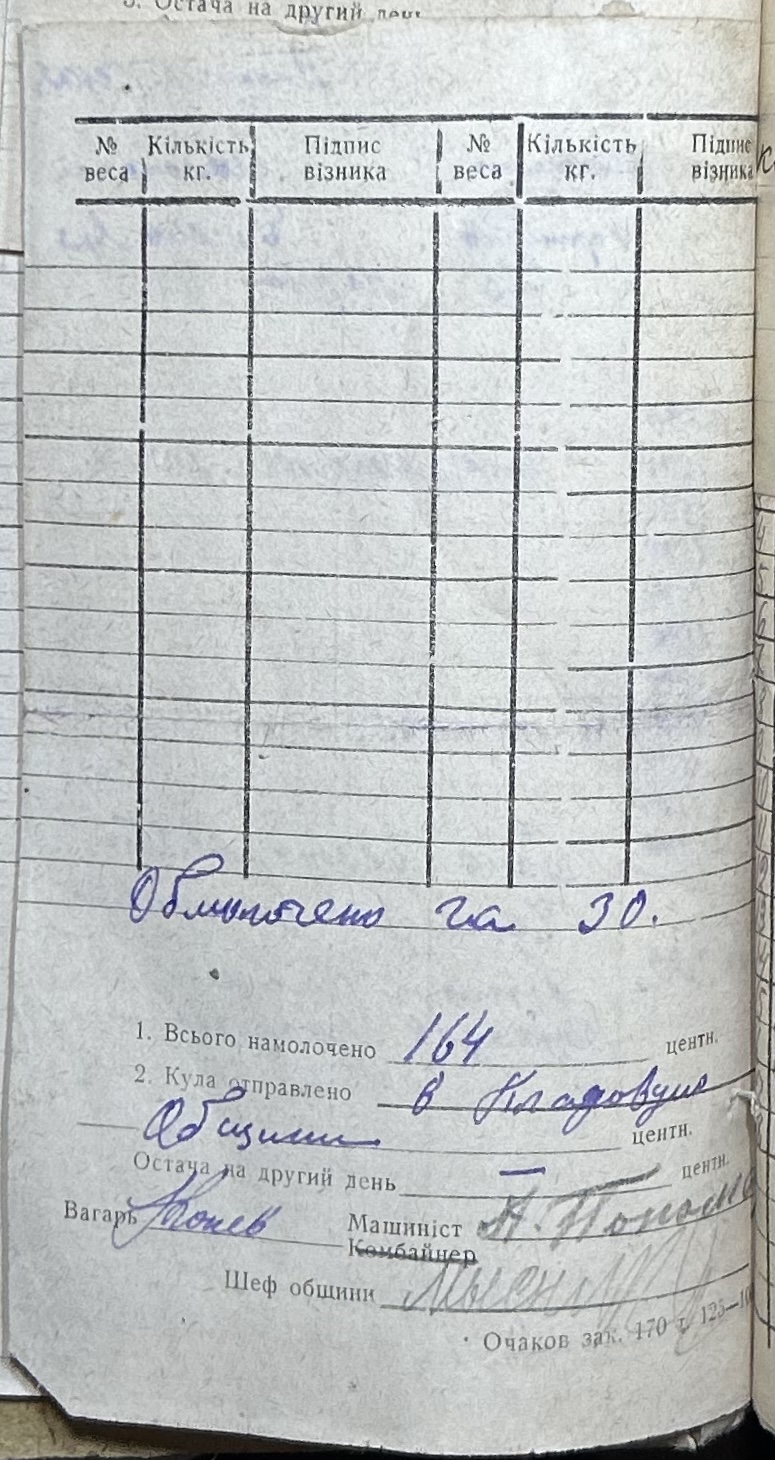 3. Остача на другий день
№ веса Кількість кг. Підпис візника № веса Кількість кг. Підпис візника
Обмолочено га 30.
1. Всього намолочено 164 центн.
2. Кула отправлено в Кладовую
Общини центн.
Остача на другий день — центн.
Вагарь Конев Машиніст
Комбайнер
Шеф общини
Очаков зак. 170 т. 125—